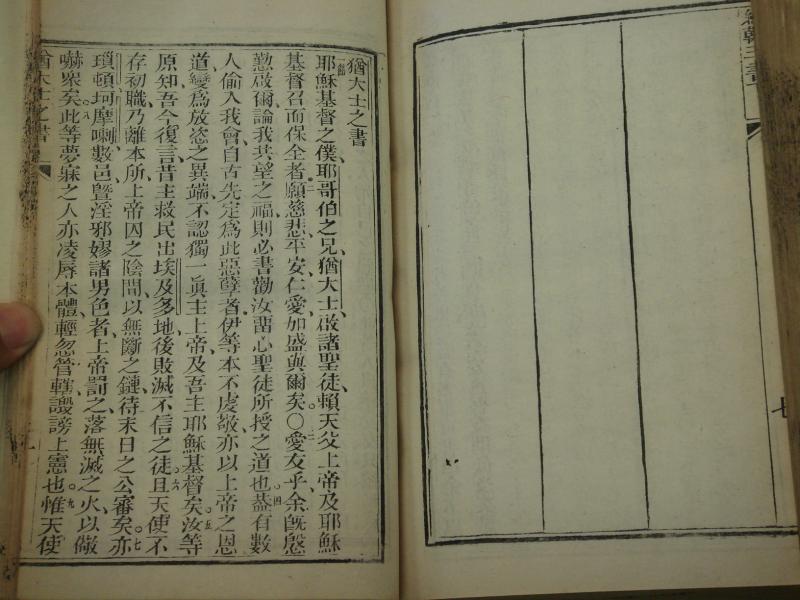 猶大士之書
耶穌基督之僕、耶哥伯之兄、猶大士、啟諸聖徒、賴天父上帝及耶穌
基督召而保全者、願慈悲平安、仁愛、如盛與爾矣。○愛友乎、余旣慇
懃啟爾、論我共望之福、則必書勸汝畱心聖徒所授之道也。蓋有數
人偷入我會、自古先定爲此惡孽者、伊等本不虔敬、亦以上帝之恩
道、變爲放恣之異端、不認獨一眞主上帝、及吾主耶穌基督矣。汝等
原知、吾今復言、昔主救民出埃及多地、後敗滅不信之徒。且天使不
存初職、乃離本所、上帝囚之陰間、以無斷之鏈、待末日之公審矣。亦
瑣頓坷摩喇數邑、曁淫邪嫪諸男色者、上帝罰之、落無滅之火、以儆
嚇衆矣。此等夢寐之人、亦凌辱本體、輕忽管轄、譏謗上憲也。惟天使
猶大士之書
七